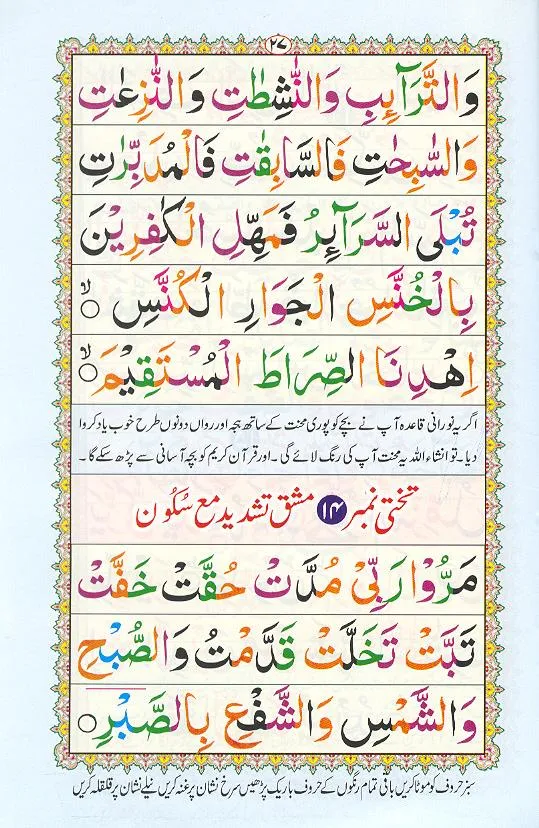 ۲۷
وَالتَّرَآئِبِ وَالنّٰشِطٰتِ وَالنّٰزِعٰتِ
وَالسّٰبِحٰتِ فَالسّٰبِقٰتِ فَالْمُدَبِّرٰتِ
تُبْلَى السَّرَآئِرُ فَمَهِّلِ الْكٰفِرِيْنَ
بِالْخُنَّسِ الْجَوَارِ الْكُنَّسِ ۙ○
اِهْدِنَا الصِّرَاطَ الْمُسْتَقِيْمَ ۙ○
اگر یہ نورانی قاعدہ آپ نے بچے کو پوری محنت کے ساتھ ہجہ اور رواں دونوں طرح خوب یاد کروا
دیا۔ تو انشاء اللہ یہ محنت آپ کی رنگ لائے گی۔ اور قرآن کریم کو بچہ آسانی سے پڑھ سکے گا۔
تختی نمبر ۱۴ مشق تشدید مع سُکُون
مَرُّوْا رَبِّيْ مُدَّتْ حُقَّتْ خَفَّتْ
تَبَّتْ تَخَلَّتْ قَدَّمْتُ وَالصُّبْحِ
وَالشَّمْسِ وَالشَّفْعِ بِالصَّبْرِ ○
سبز حروف کو موٹا کریں باقی تمام رنگوں کے حروف باریک پڑھیں سرخ نشان پر غنہ کریں نیلے نشان پر قلقلہ کریں